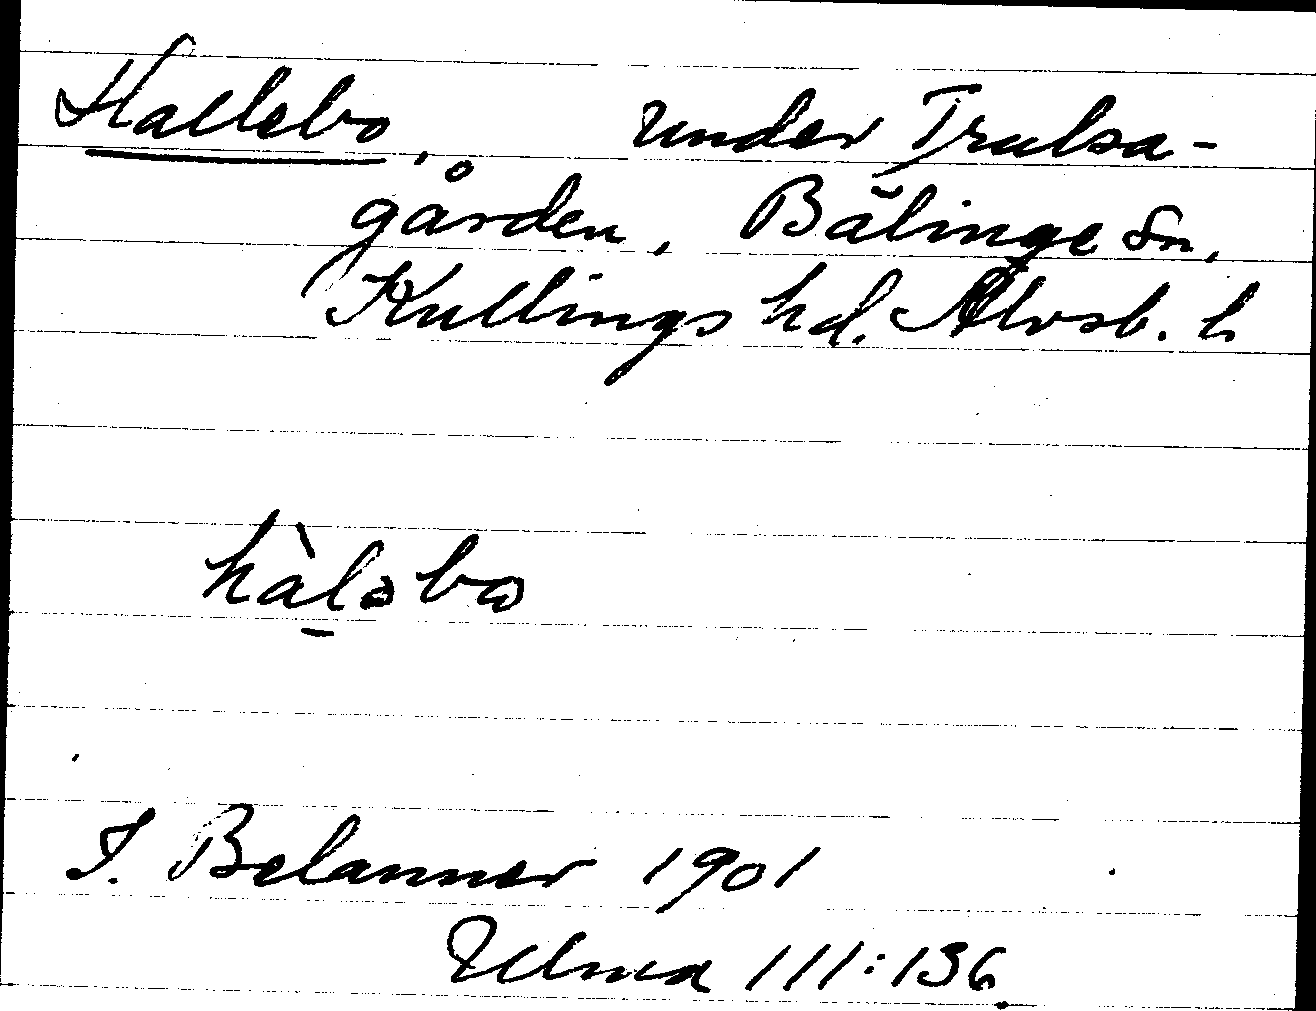 Hallebo, under Trulsa-
gården, Bälinge sn,
Kullings hd. Älvsb. l.
hàləbω
I. Belanner 1901
Ulma 111:136.